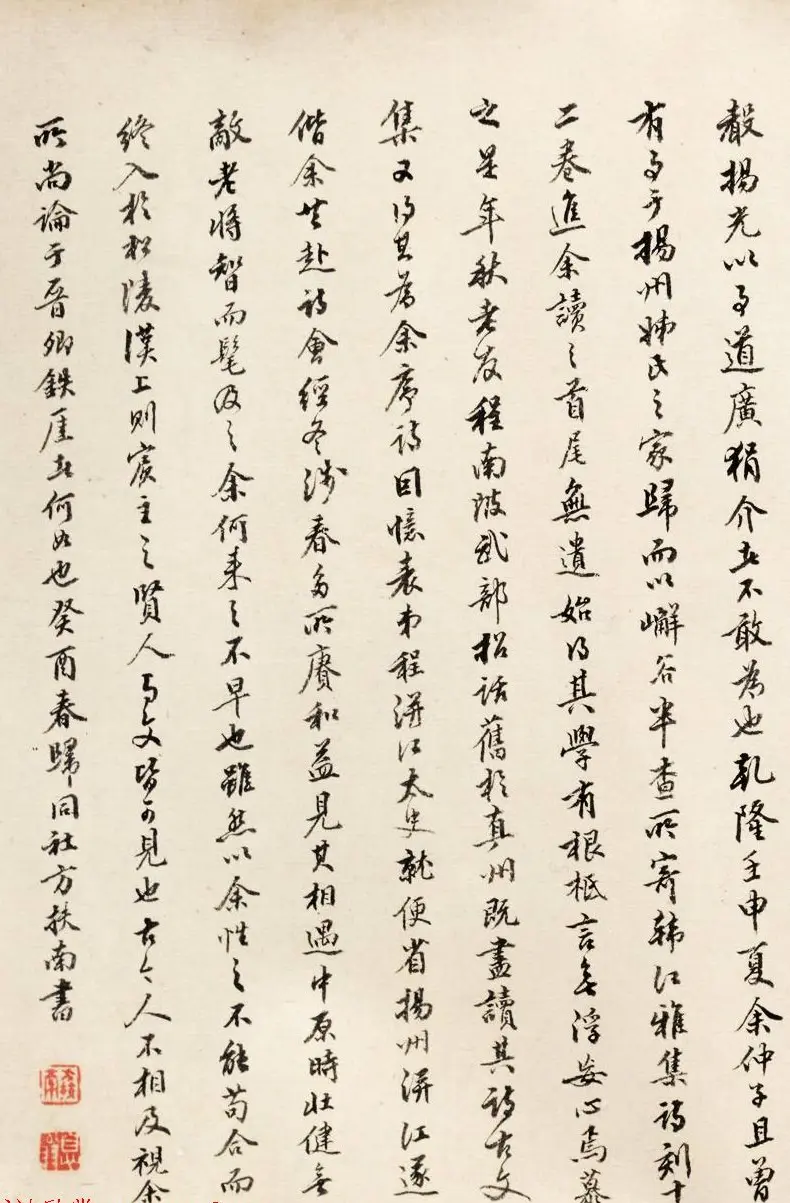 聲揚光以為道廣狷介者不敢為也乾隆壬申夏余仲子且曾
有事于揚州姊氏之家歸而以嶰谷半查所寄韩江雅集詩刻十
二卷進余讀之首尾無遺始得其學有根柢言無浮妄心焉慕
之是年秋老友程南陂武部招話舊於真州既盡讀其詩古文
集又得其為余序詩回憶表弟程洴江太史就便省揚州洴江遂
偕余共赴詩會經冬涉春多所賡和益見其相遇中原時壯健無
敵老將智而髦及之余何来之不早也雖然以余性之不能苟合而
終入於松陵漢上則賓主之賢人與文皆可見也古今人不相及視余
所尚論于晋卿鉄厓者何如也癸酉春歸同社方扶南書